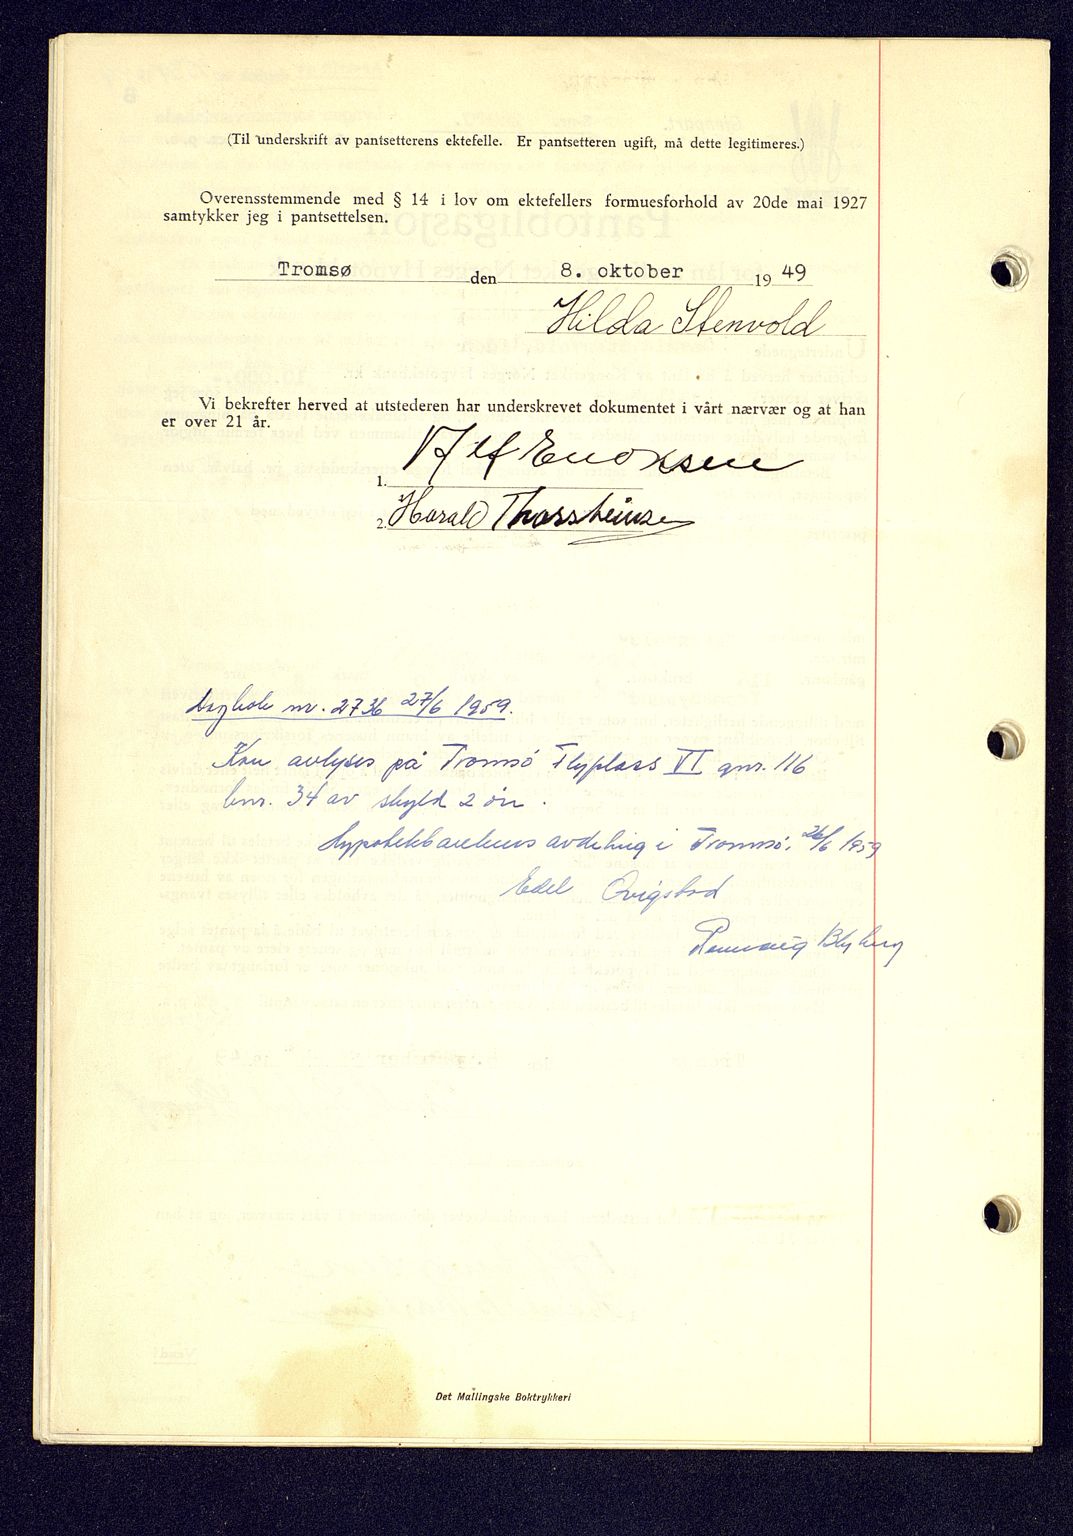 (Til underskrift av pantsetterens ektefelle. Er pantsetteren ugift, må dette legitimeres.)
Overensstemmende med § 14 i lov om ektefellers formuesforhold av 20de mai 1927
samtykker jeg i pantsettelsen.
Tromsø den 8. oktober 1949
Hilda Stenvold
Vi bekrefter herved at utstederen har underskrevet dokumentet i vårt nærvær og at han
er over 21 år.
1. Alf Enoksen
2. Harald Thorsteinsen
Dagbok nr. 2736 27/6 1959.
Kan avlyses på Tromsø Flyplass VI gnr. 116
bnr. 34 av skyld 2 øre.
Hypotekbankens avdeling i Tromsø, 26/6 1959
Edel Qvigstad
Blyberg
Det Mallingske Boktrykkeri